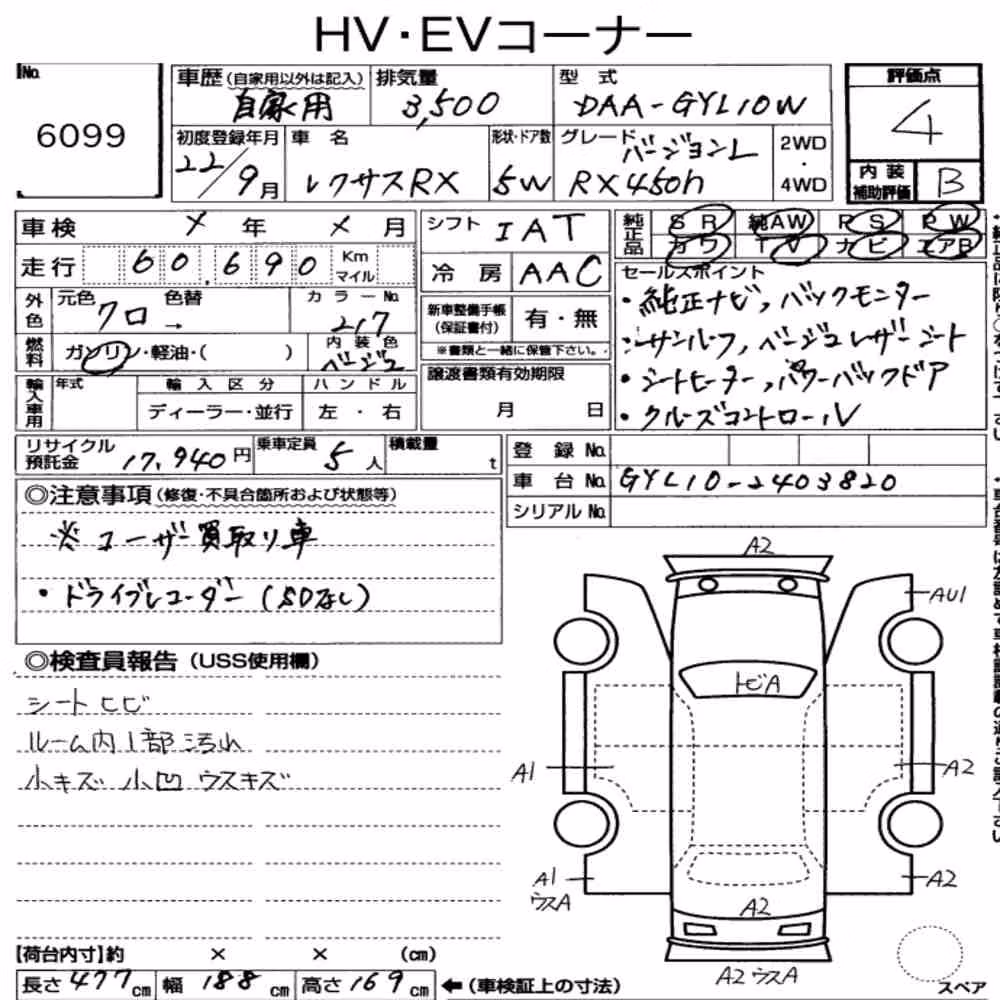 HV・EVコーナー
No.
6099
車歴(自家用以外は記入) 自家用
排気量 3,500
型式 DAA-GYL10W
評価点 4
初度登録年月 22/9月
車名 レクサスRX
形状・ドア数 5W
グレード バージョンL RX450h
2WD・4WD
内装補助評価 B
車検 × 年 × 月
シフト IAT
純正品 SR 純AW PS PW
カワ TV ナビ エアB
走行 60,690 Km マイル
冷房 AAC
セールスポイント
・純正ナビ,バックモニター
・サンルーフ,ベージュレザーシート
・シートヒーター,パワーバックドア
・クルーズコントロール
外色 元色 クロ → 色替 カラーNo. 217
新車整備手帳(保証書付) 有・無
※書類と一緒に保管下さい。
燃料 ガソリン・軽油・( )
内装色 ベージュ
輸入車用 年式 輸入区分 ディーラー・並行 ハンドル 左・右
譲渡書類有効期限 月 日
リサイクル預託金 17,940円
乗車定員 5人
積載量 t
登録No.
車台No. GYL10-2403820
シリアルNo.
◎注意事項(修復・不具合箇所および状態等)
※ユーザー買取り車
・ドライブレコーダー(SDなし)
◎検査員報告(USS使用欄)
シートヒビ
ルーム内1部汚れ
小キズ 小凹 ウスキズ
A2
AU1
トビA
A1
A2
A1
ウスA
A2
A2
A2 ウスA
スペア
【荷台内寸】約 × × (cm)
長さ 477cm 幅 188cm 高さ 169cm ←(車検証上の寸法)